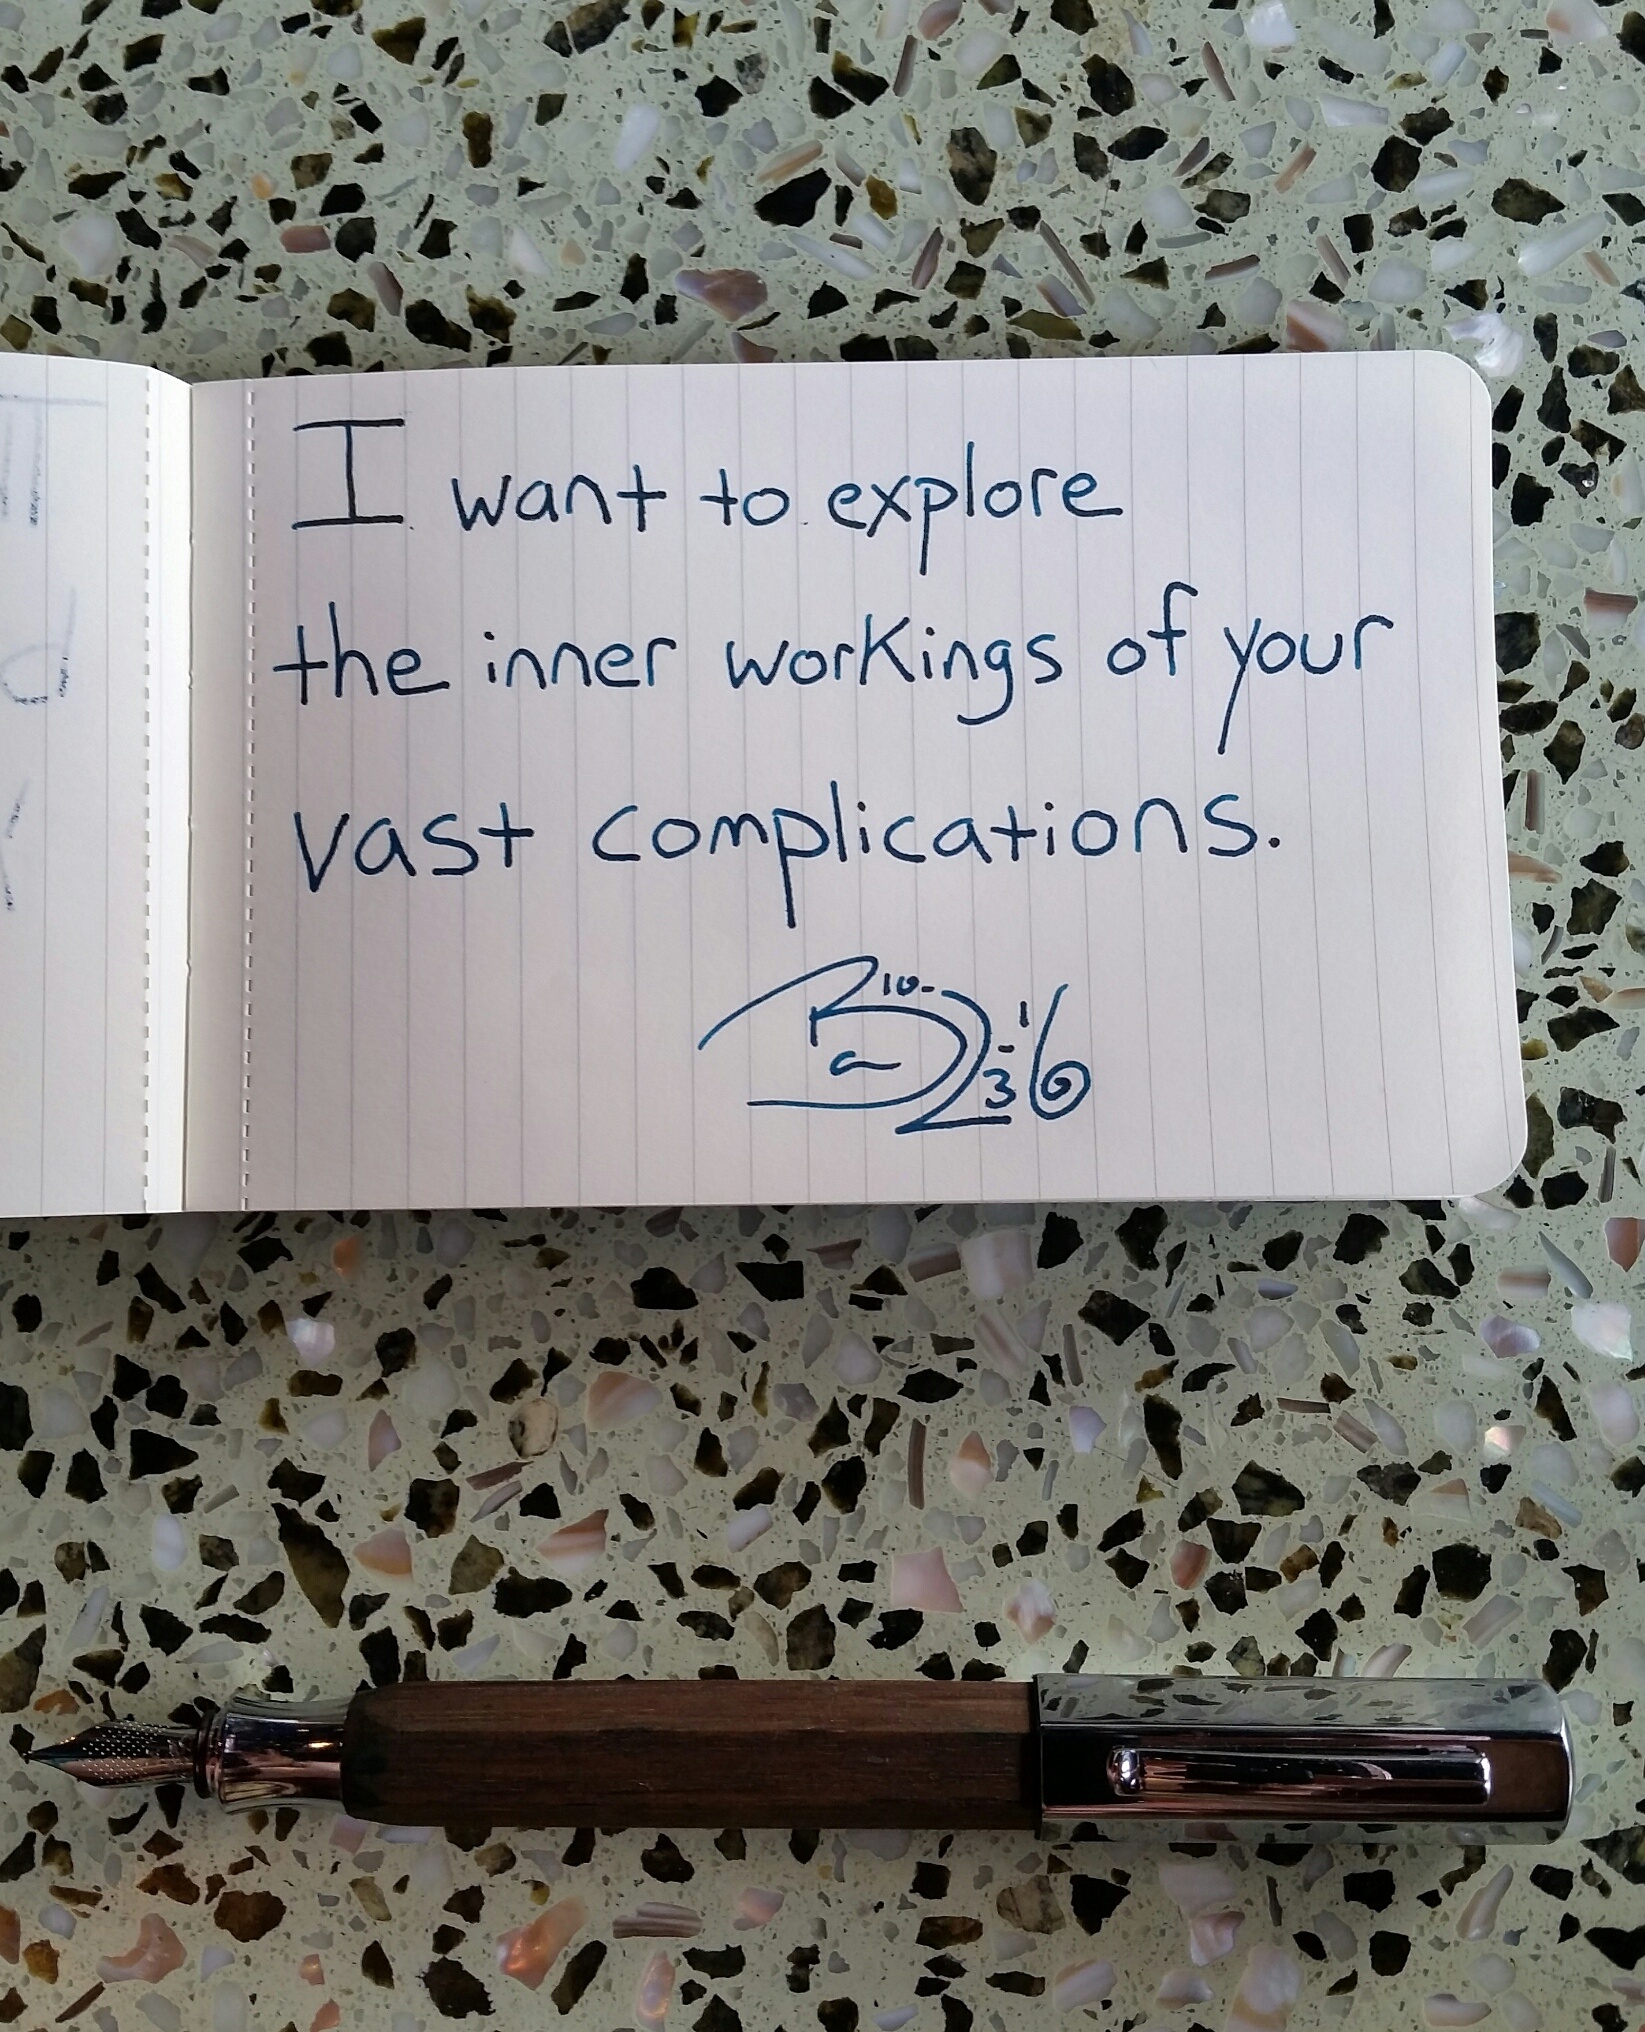 I want to explore
the inner workings of your
vast complications.
10-3-'16